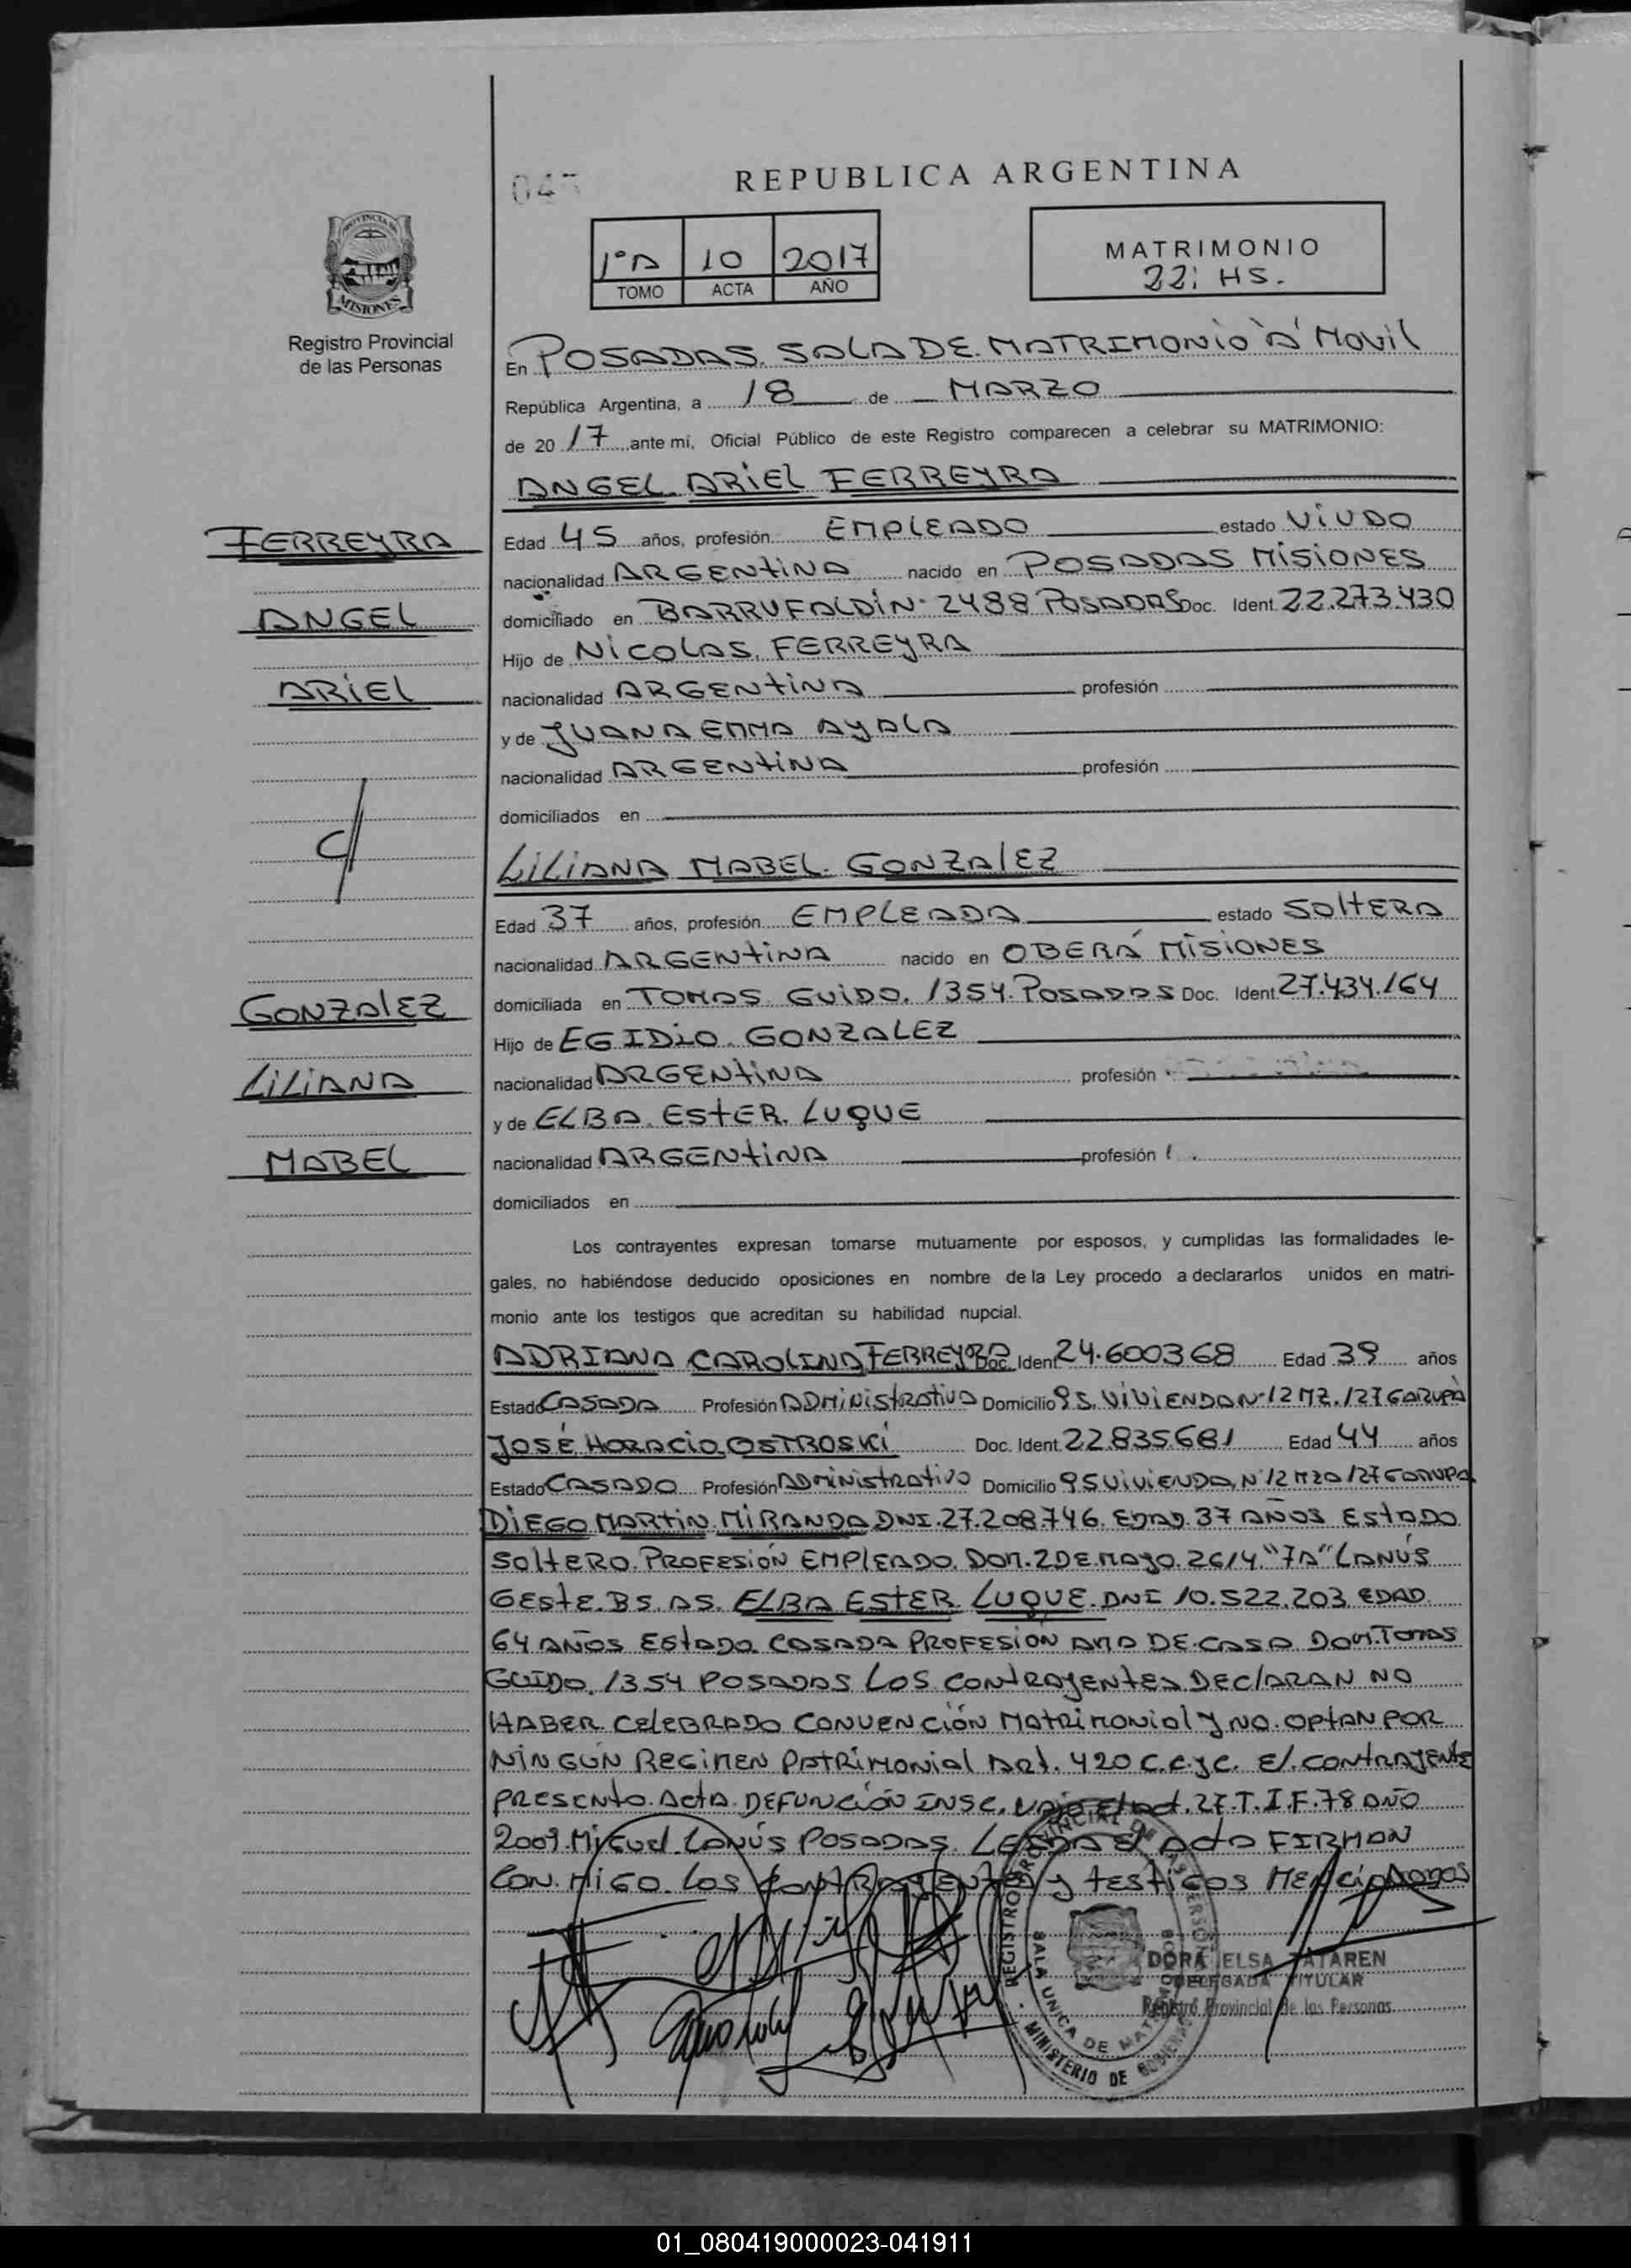 REPUBLICA ARGENTINA
PROVINCIA DE
MISIONES
Registro Provincial
de las Personas
1°A 10 2017
TOMO ACTA AÑO
MATRIMONIO
22; HS.
En POSADAS. SALA DE. MATRIMONIO "A" MOVIL
República Argentina, a 18 de MARZO
de 20 17 ante mí, Oficial Público de este Registro comparecen a celebrar su MATRIMONIO:
ANGEL ARIEL FERREYRA
FERREYRA
ANGEL
ARIEL
Edad 45 años, profesión EMPLEADO estado VIUDO
nacionalidad ARGENTINA nacido en POSADAS MISIONES
domiciliado en BARRUFALDIN 2488 POSADAS Doc. Ident. 22.273.430
Hijo de NICOLAS. FERREYRA
nacionalidad ARGENTINA profesión
y de JUANA EMMA AYALA
nacionalidad ARGENTINA profesión
domiciliados en
c/
LILIANA MABEL. GONZALEZ
Edad 37 años, profesión EMPLEADA estado SOLTERA
nacionalidad ARGENTINA nacido en OBERÁ MISIONES
GONZALEZ
LILIANA
MABEL
domiciliada en TOMAS GUIDO. 1354. POSADAS Doc. Ident. 27.434.164
Hijo de EGIDIO. GONZALEZ
nacionalidad ARGENTINA profesión
y de ELBA. ESTER. LUQUE
nacionalidad ARGENTINA profesión
domiciliados en
Los contrayentes expresan tomarse mutuamente por esposos, y cumplidas las formalidades le-
gales, no habiéndose deducido oposiciones en nombre de la Ley procedo a declararlos unidos en matri-
monio ante los testigos que acreditan su habilidad nupcial.
ADRIANA CAROLINA FERREYRA Doc. Ident. 24.600368 Edad 39 años
Estado CASADA Profesión ADMINISTRATIVA Domicilio 95. VIVIENDA N° 12 MZ. 127 GARUPÁ
JOSÉ HORACIO OSTROSKI Doc. Ident. 22.835.681 Edad 44 años
Estado CASADO Profesión ADMINISTRATIVO Domicilio 95 VIVIENDA N° 12 MZA 127 GARUPA
DIEGO MARTIN MIRANDA DNI. 27.208.746. EDAD. 37 AÑOS ESTADO
SOLTERO. PROFESIÓN EMPLEADO. DOM. 2 DE MAYO. 2614. "7A" LANÚS
OESTE. BS. AS. ELBA ESTER LUQUE. DNI 10.522.203 EDAD
64 AÑOS ESTADO CASADA PROFESIÓN AMA DE CASA DOM. TOMAS
GUIDO. 1354 POSADAS LOS CONTRAYENTES DECLARAN NO
HABER CELEBRADO CONVENCIÓN MATRIMONIAL Y NO. OPTAN POR
NINGUN REGIMEN PATRIMONIAL ART. 420 C.C.YC. EL CONTRAYENTE
PRESENTO. ACTA. DEFUNCIÓN INSC. Vajo El Act. 27. T. I. F. 78 AÑO
2009. MIGUEL LANÚS POSADAS. LEIDA El Acta FIRMAN
CON. MIGO. LOS CONTRAYENTES y TESTIGOS MENCIONADOS
REGISTRO PROVINCIAL DE LAS PERSONAS
SALA UNICA DE MATRIMONIOS
MINISTERIO DE GOBIERNO
DORA ELSA TATAREN
DELEGADA TITULAR
Registro Provincial de las Personas
01_080419000023-041911